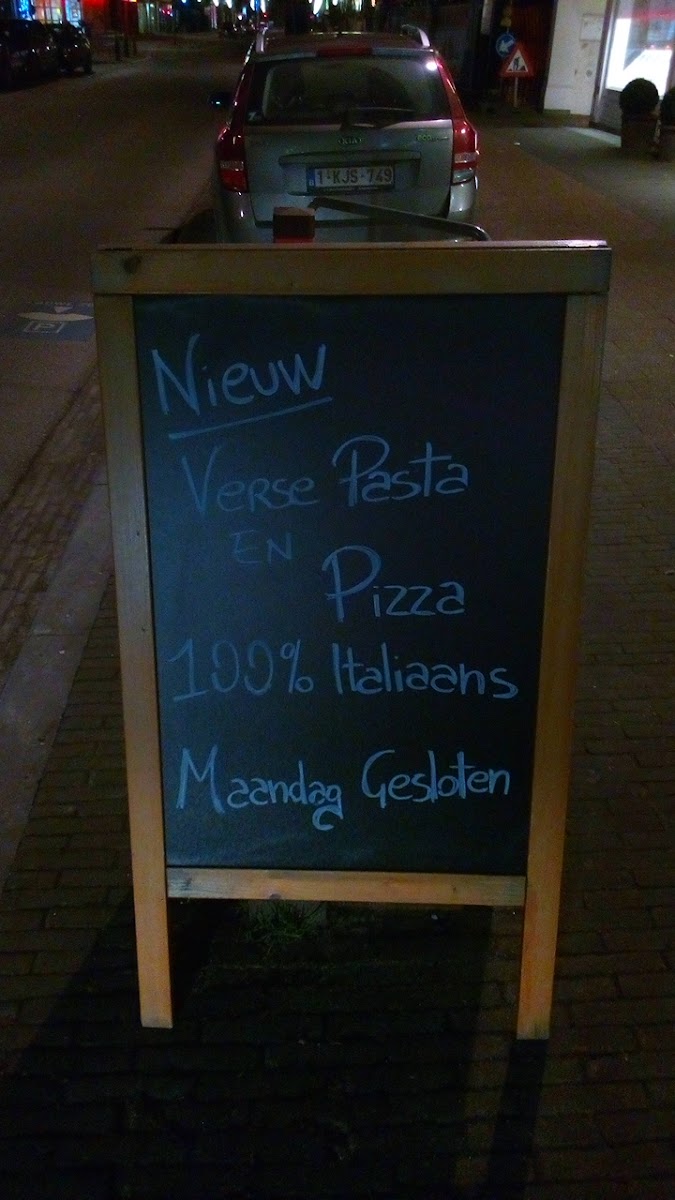 KIA
1-KJS-749
P
Nieuw
Verse Pasta
EN
Pizza
100% Italiaans
Maandag Gesloten